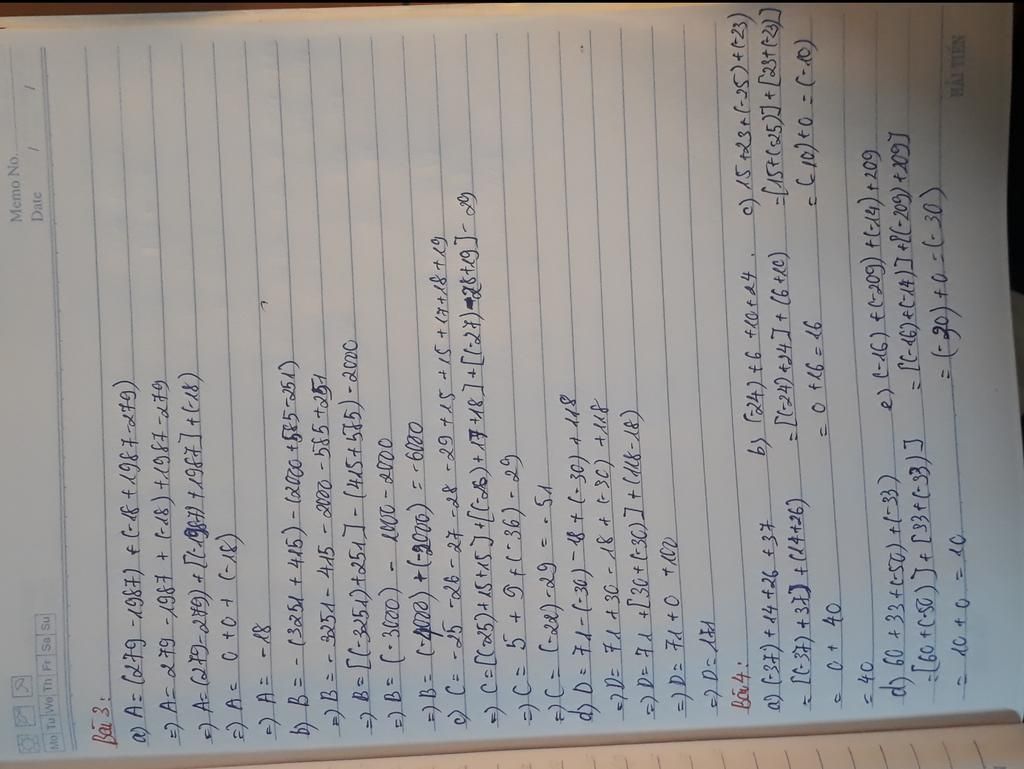 Memo No.
Date / /
Mo Tu We Th Fr Sa Su
Bài 3:
a) A = (279 - 1987) + (-18 + 1987 - 279)
=) A = 279 - 1987 + (-18) + 1987 - 279
=) A = (279 - 279) + [(-1987) + 1987] + (-18)
=) A = 0 + 0 + (-18)
=) A = -18
b) B = - (3251 + 415) - (2000 + 585 - 251)
=) B = - 3251 - 415 - 2000 - 585 + 251
=) B = [(-3251) + 251] - (415 + 585) - 2000
=) B = (-3000) - 1000 - 2000
=) B = (-4000) + (-2000) = -6000
c) C = -25 - 26 - 27 - 28 - 29 + 15 + 15 + 17 + 18 + 19
=) C = [(-25) + 15 + 15] + [(-26) + 17 + 18] + [(-27) - 28 + 19] - 29
=) C = 5 + 9 + (-36) - 29
=) C = (-22) - 29 = - 51
d) D = 71 - (-30) - 18 + (-30) + 118
=) D = 71 + 30 - 18 + (-30) + 118
=) D = 71 + [30 + (-30)] + (118 - 18)
=) D = 71 + 0 + 100
=) D = 171
Bài 4:
a) (-37) + 14 + 26 + 37
= [(-37) + 37] + (14 + 26)
= 0 + 40
= 40
b) (-24) + 6 + 10 + 24
= [(-24) + 24] + (6 + 10)
= 0 + 16 = 16
c) 15 + 23 + (-25) + (-23)
= [15 + (-25)] + [23 + (-23)]
= (-10) + 0 = (-10)
d) 60 + 33 + (-50) + (-33)
= [60 + (-50)] + [33 + (-33)]
= 10 + 0 = 10
e) (-16) + (-209) + (-14) + 209
= [(-16) + (-14)] + [(-209) + 209]
= (-30) + 0 = (-30)
HẢI TIẾN